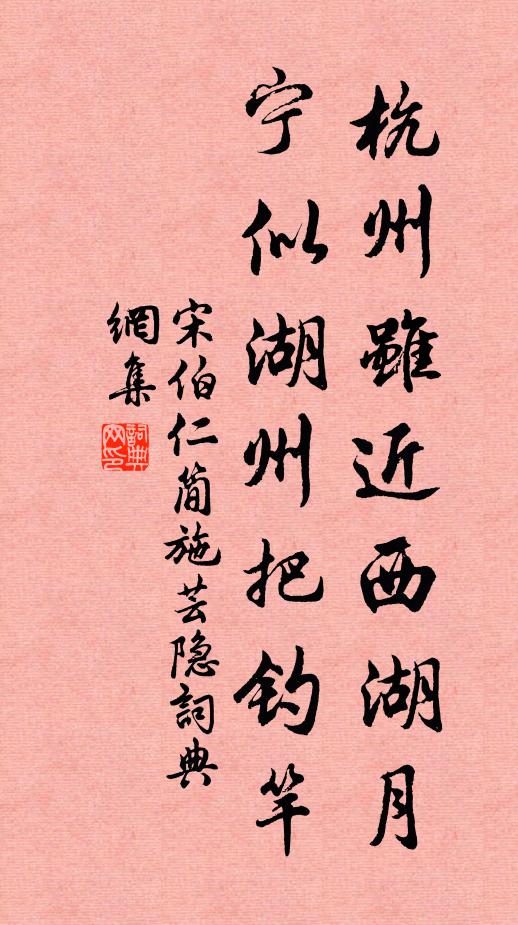 杭州雖近西湖月
宁似湖州把钓竿
宋伯仁简施芸隐詞典
網集
詞典
网印